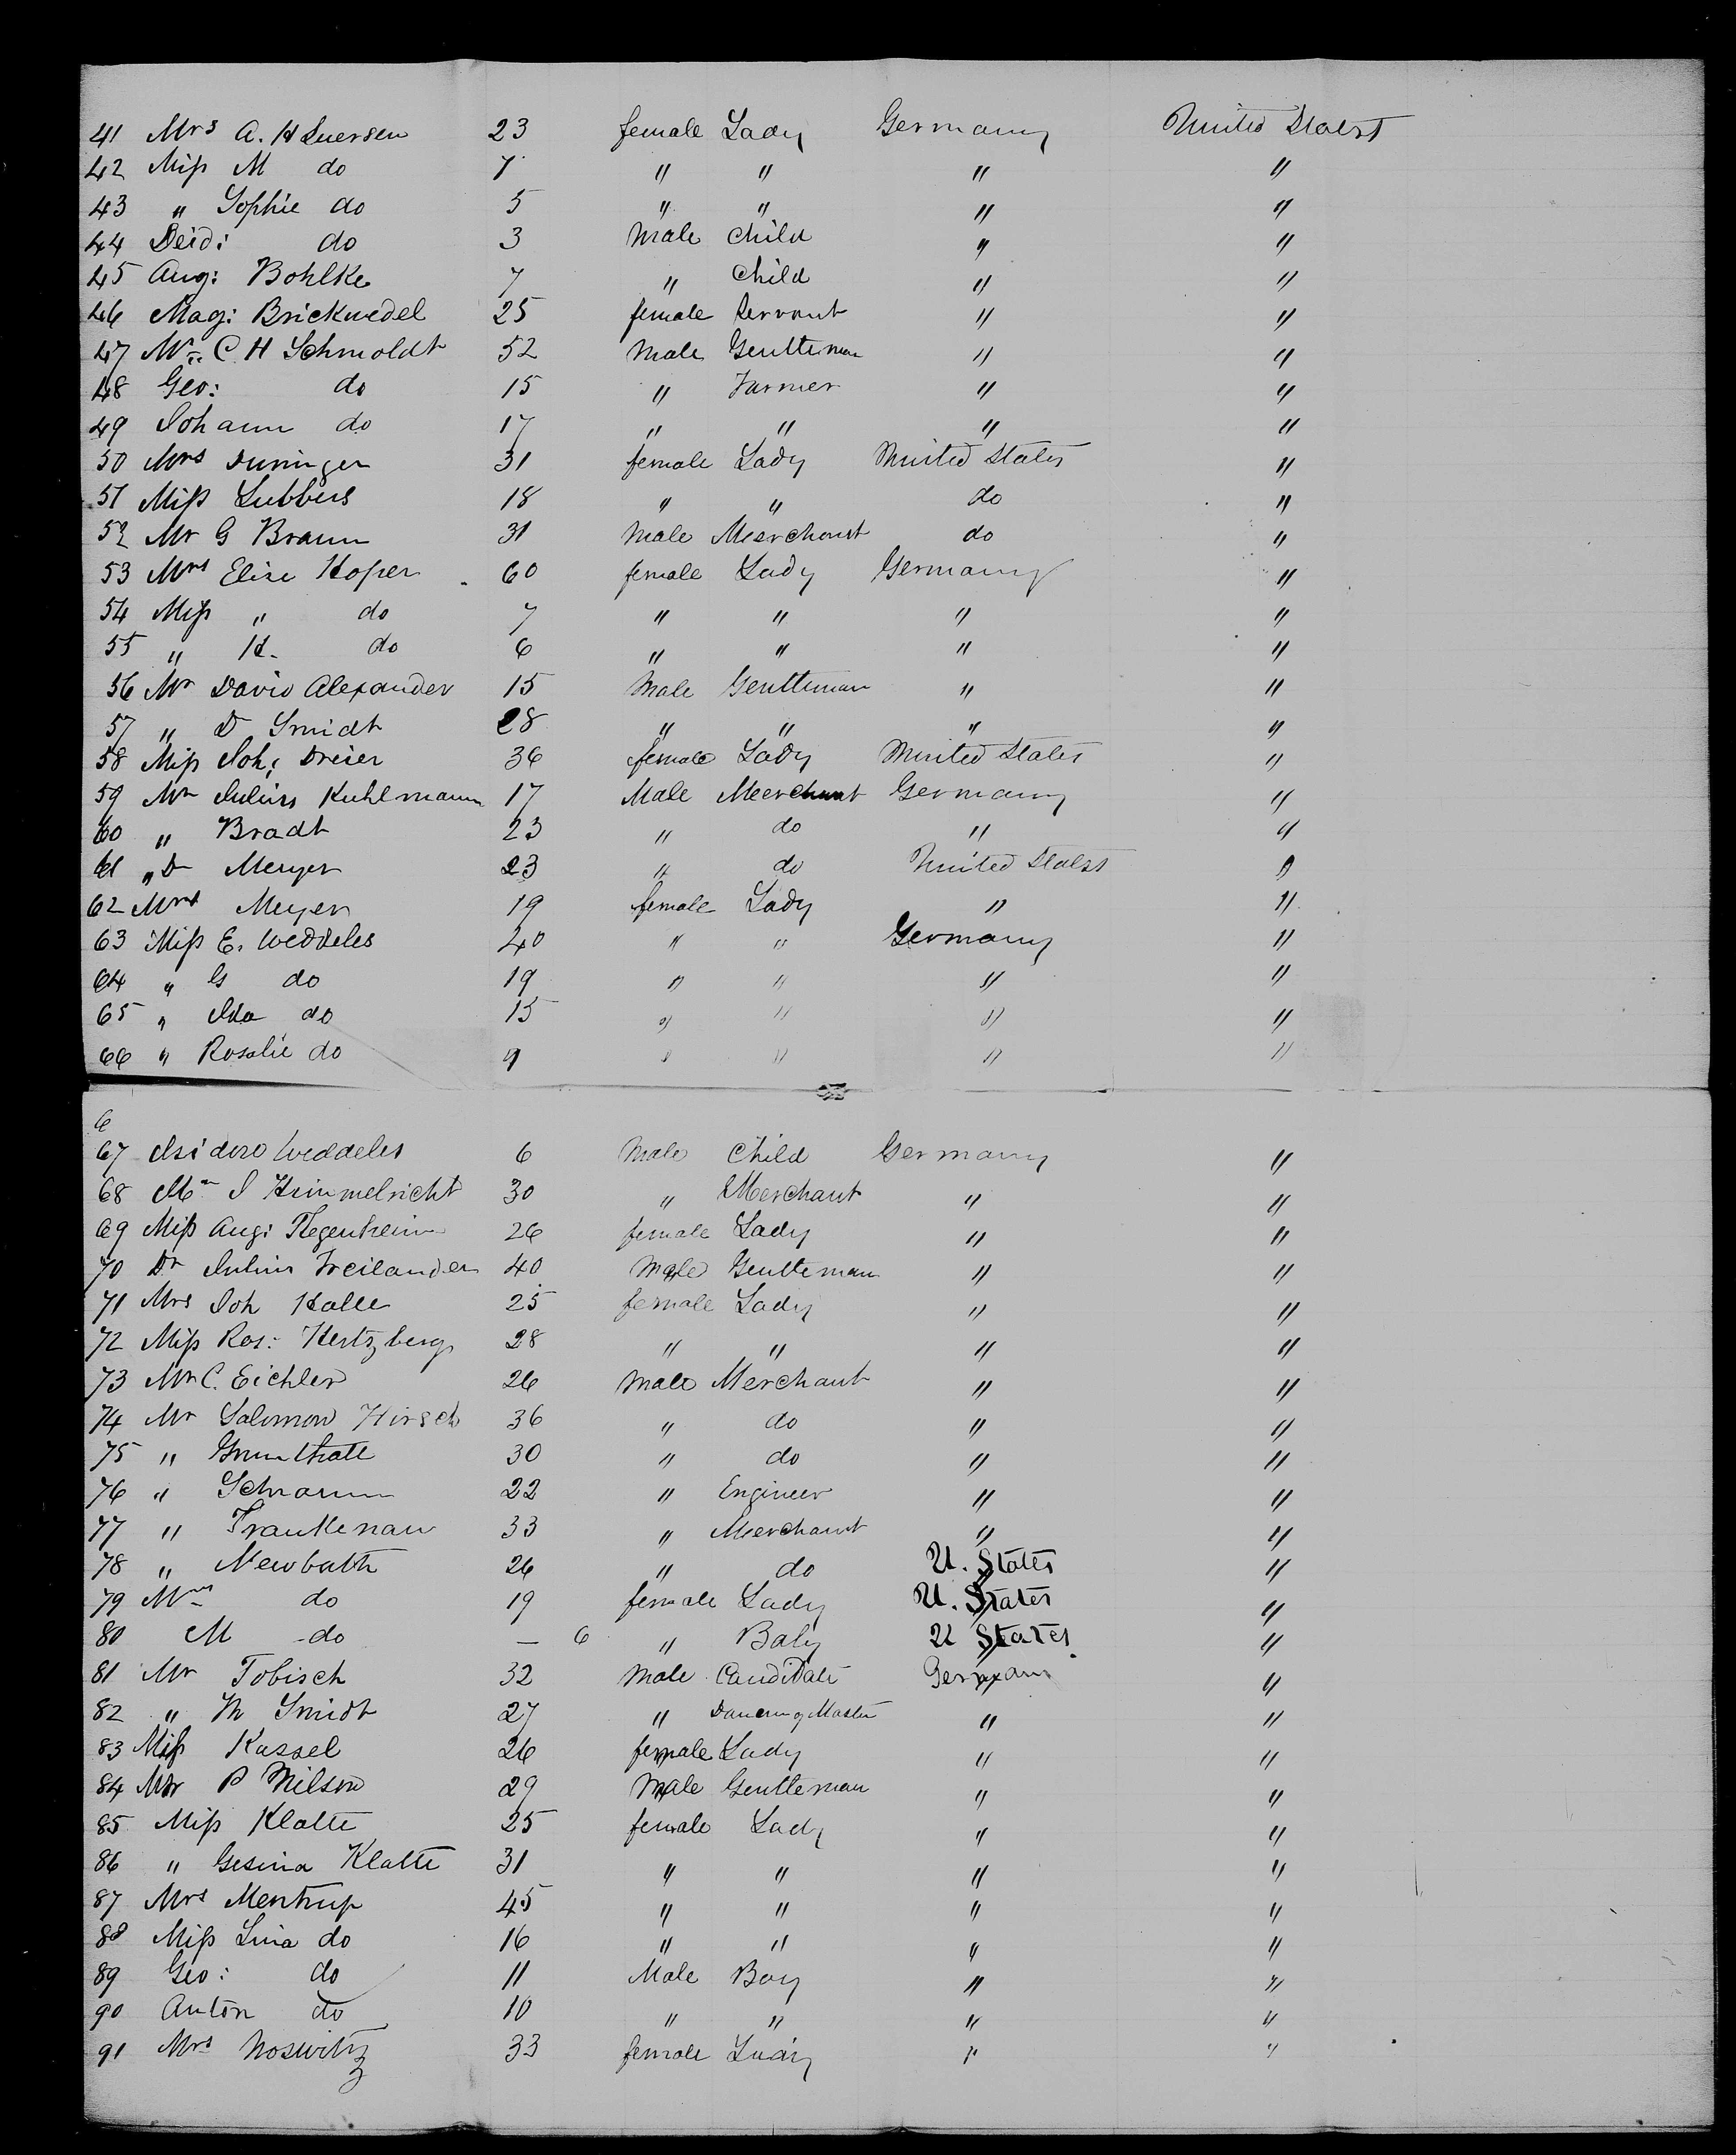 41 Mrs A. H Luersen 23 female Lady Germany United States
42 Miss M do 7 " " " "
43 " Sophie do 5 " " " "
44 Deid: do 3 Male Child " "
45 Aug: Bohlke 7 " Child " "
46 Mag: Brickwedel 25 female Servant " "
47 Mr C H Schmoldt 52 Male Gentleman " "
48 Geo: do 15 " Farmer " "
49 Johann do 17 " " " "
50 Mrs Duninger 31 female Lady United States "
51 Miss Lubbers 18 " " do "
52 Mr G Braun 31 Male Merchant do "
53 Mrs Elise Hoper 60 female Lady Germany "
54 Miss " do 7 " " " "
55 " H. do 6 " " " "
56 Mr David Alexander 15 Male Gentleman " "
57 " D Smidt 28 " " " "
58 Miss Joh: Dreier 36 female Lady United States "
59 Mr Julius Kuhlmann 17 Male Meerchant Germany "
60 " Bradt 23 " do " "
61 " D Meyer 23 " do United States "
62 Mrs Meyer 19 female Lady " "
63 Miss E. Weddeles 40 " " Germany "
64 " G do 19 " " " "
65 " Ida do 15 " " " "
66 " Rosalie do 9 " " " "
6
67 Isidoro Weddeles 6 Male Child Germany "
68 Mr I Himmelricht 30 " Merchant " "
69 Miss Aug: Flegenheim 26 female Lady " "
70 Dr Julius Freilander 40 Male Gentleman " "
71 Mrs Joh Halle 25 female Lady " "
72 Miss Ros: Hertzberg 28 " " " "
73 Mr C. Eichler 26 Male Merchant " "
74 Mr Salomon Hirsch 36 " do " "
75 " Grunthall 30 " do " "
76 " Schramm 22 " Engineer " "
77 " Frankenau 33 " Meerchant " "
78 " Newbath 26 " do U. States "
79 Mrs do 19 female Lady U. States "
80 M do — 6 " Baby U States "
81 Mr Tobisch 32 Male Candidate German "
82 " M Smidt 27 " Dancing Master " "
83 Miss Kassel 26 female Lady " "
84 Mr P Nilson 29 Male Gentleman " "
85 Miss Klatte 25 female Lady " "
86 " Gesina Klatte 31 " " " "
87 Mrs Mentrup 45 " " " "
88 Miss Lina do 16 " " " "
89 Geo: do 11 Male Boy " "
90 Anton do 10 " " " "
91 Mrs Noswitz 33 female Lady " "